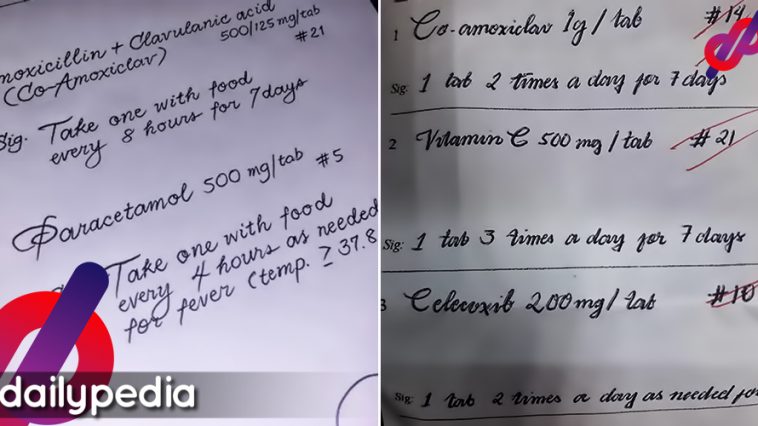 moxicillin + Clavulanic acid
500/125 mg/tab
(Co-Amoxiclav)
#21
Sig. Take one with food
every 8 hours for 7 days
Paracetamol 500 mg/tab #5
Take one with food
every 4 hours as needed
for fever (temp. ≥ 37.8
dailypedia
1 Co-amoxiclav 1g / tab #14
Sig: 1 tab 2 times a day for 7 days
2 Vitamin C 500 mg / tab #21
Sig: 1 tab 3 times a day for 7 days
3 Celecoxib 200 mg / tab #10
Sig: 1 tab 2 times a day as needed for